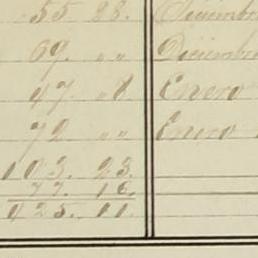 55. 28. Diciembre
69. " " Diciembre
47. " 8. Enero
72 " " Enero
103. 23.
77. 16.
425. 11.